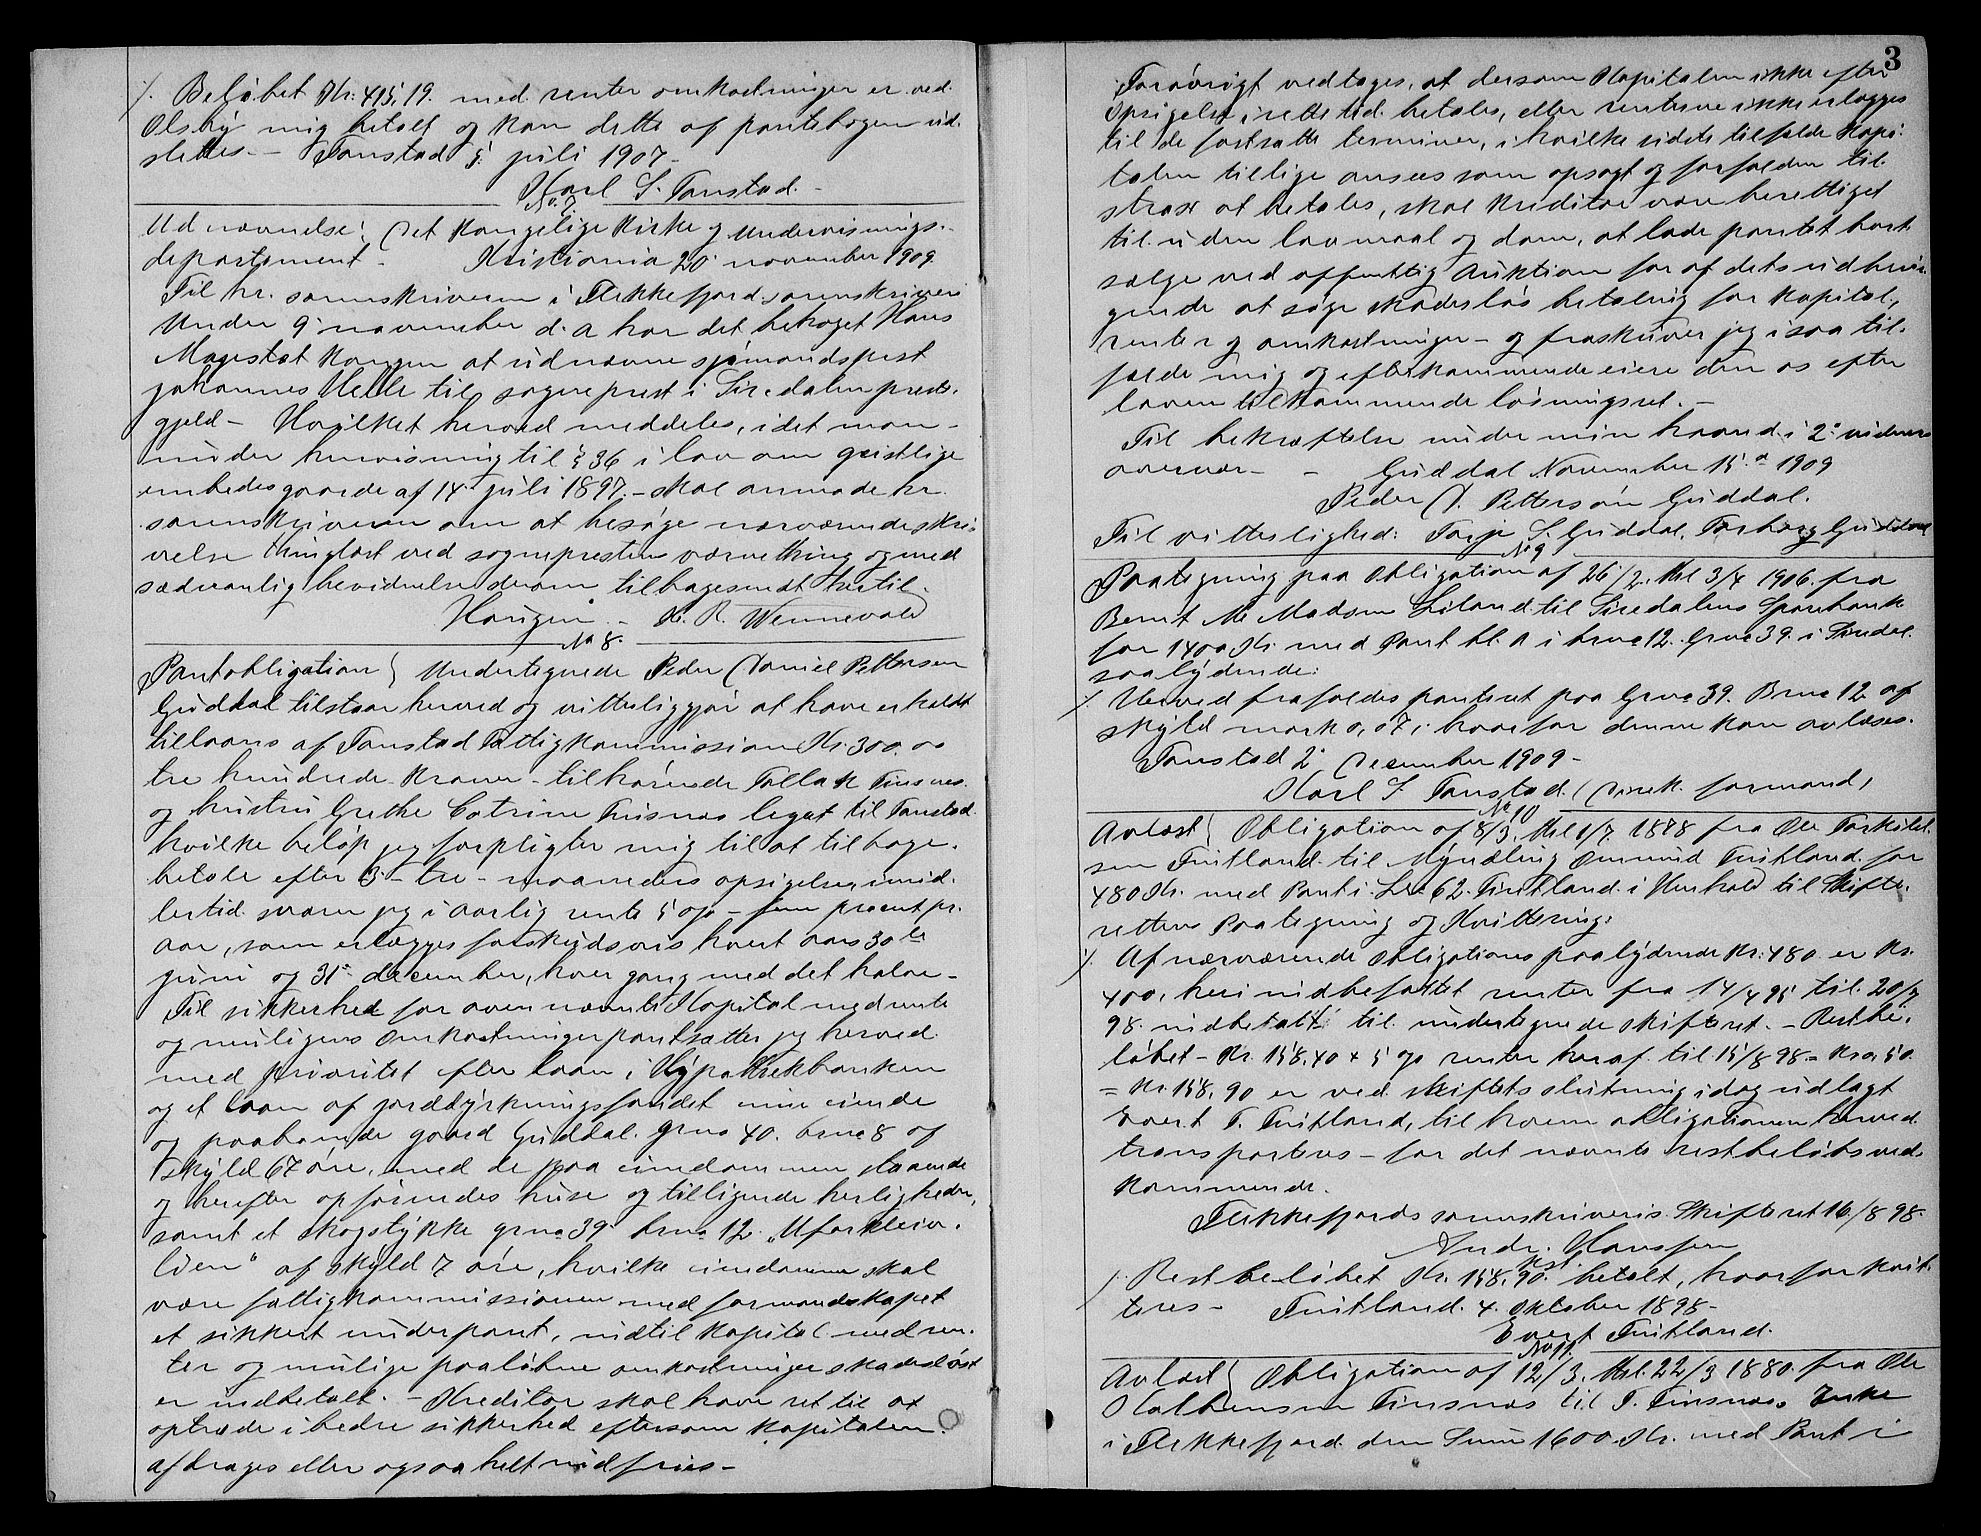 ./. Beløbet Kr. 415,19. med renter omkostninger er ved
Olsby mig betalt og kan dette af pantebogen ud-
slettes. – Tonstad 5. juli 1907 –
Karl S. Tonstad. –
No. 7
Udnævnelse: Det Kongelige Kirke og Undervisnings-
departement – Kristiania 20 november 1909.
Til hr. sorenskriveren i Flekkefjord sorenskriveri
Under 9 november d. a har det behaget Hans
Majestæt Kongen at udnævne sjømandsprest
Johannes Helle til sogneprest i Siredalen præste-
gjeld – Hvilket herved meddeles, idet man –
under henvisning til § 36 i lov om geistlige
embedsgaarde af 14. juli 1897. – skal anmode hr.
sorenskriveren om at besøge nærværende skri-
velse thinglæst ved sogneprestens værnething og med
sædvanlig bevidnelse derom tilbagesendt hertil.
Hougen. – K. R. Wennevold
No 8.
Pantobligation } Undertegnede Peder Daniel Pettersen
Guddal tilstaar herved og vitterliggjør at have erholdt
tillaans af Tonstad fattigkommission Kr. 300.00
tre hundrede kroner – tilhørende Tollak Tinsnes.
og hustru Grethe Catrine Tinsnes legat til Tonstad.
hvilke beløp jeg forpligter mig til at tilbage-
betale efter 3 – tre – maaneders opsigelse imid-
lertid svarer jeg i aarlig rente 5 o/o – fem procent pr.
aar, som erlægges forskudsvis hvert aars 30te
juni og 31te december, hver gang med det halve –
Til sikkerhed for ovennævnte Kapital med rente
og muligens omkostninger pantsætter jeg herved
med prioritet efter laan i Hypothekbanken
og et laan af jorddyrkningsfondet min eiende
og paaboende gaard Guddal. grno 40. brno 8 af
skyld 67 øre, med de paa eiendommen staaende
og herefter opførendes huse og tilligende herligheder,
samt et skogstykke grno 39 brno 12. „Ufarkleiv-
lien" af skyld 7 øre, hvilke eiendomme skal
være fattigkommissionen med formandskapet
et sikkert underpant, indtil kapital med ren-
ter og mulige paaløbne omkostninger skadesløst
er indbetalt. – Kreditor skal have ret til at
optræde i bedre sikkerhed eftersom kapitalen
afdrages eller ogsaa helt indfries –
3
Forøvrigt vedtages, at dersom Kapitalen ikke efter
opsigelse i rette tid betales, eller renterne ikke erlægges
til de fastsatte terminer, i hvilke sidste tilfælde Kapi-
talen tillige ansees som opsagt og forfalden til
strax at betales, skal Kreditor være berettiget
til uden lovmaal og dom, at lade pantet bort-
sælge ved offentlig Auktion for af dets udbrin-
gende at søge skadesløs betaling for kapital,
renter og omkostninger – og fraskriver jeg i saa til-
fælde mig og efterkommende eiere den os efter
loven tilkommende løsningsret. –
Til bekræftelse under min haand i 2 vidners
overvær – – Guddal November 15. 1909
Peder D. Pettersøn Guddal.
Til vitterlighed: Torje S. Guddal. Torberg Guddal
No 9
Paategning paa Obligation af 26/2. thl 3/4 1906. fra
Bernt M. Madsen Liland til Siredalens Sparebank
for 1400 Kr. med Pant bl. a i brno 12. Grno 39. i Sirdal.
saalydende:
./. Herved frafaldes panteret paa Grno 39. Brno 12 af
skyld mark 0,07, hvorfor denne kan avlæses.
Tonstad 2. December 1909 –
Karl S. Tonstad. (direk. formand)
No 10
Avlæst } Obligation af 8/3. thl 1/7. 1878 fra Ole Torkild-
sen Fintland til Myndling Omund Fintland for
480 Kr. med Pant i Lno 62. Fintland i Henhold til Skifte-
rettens Paategning og Kvittering:
./. Af nærværende Obligations paalydende Kr. 480. er Kr.
400, heri indbefattet renter fra 14/4 95 til 20/7
98. indbetalt til undertegnede skifteret. – Restbe-
løbet – Kr. 158.40 + 5 o/o renter heraf til 15/8 98 – Kr 0,50.
= Kr. 158,90 er ved skiftets slutning idag udlagt
Evert T. Fintland, til hvem obligationen herved
transporteres – for det nævnte restbeløbs ved-
kommende.
Flekkefjords sorenskriveris Skifteret 16/8 98.
Andr. Hanssen
kst.
./. Restbeløbet Kr. 158,90. betalt, hvorfor kvit-
teres – Fintland. 4. oktober 1898 –
Evert Fintland.
No 11.
Avlæst } Obligation af 12/3. thl. 22/3 1880. fra Ole
Kolbensen Tinsnæs til T. Tinsnæs. Enke
i Flekkefjord den Sum 1600 Kr. med Pant i